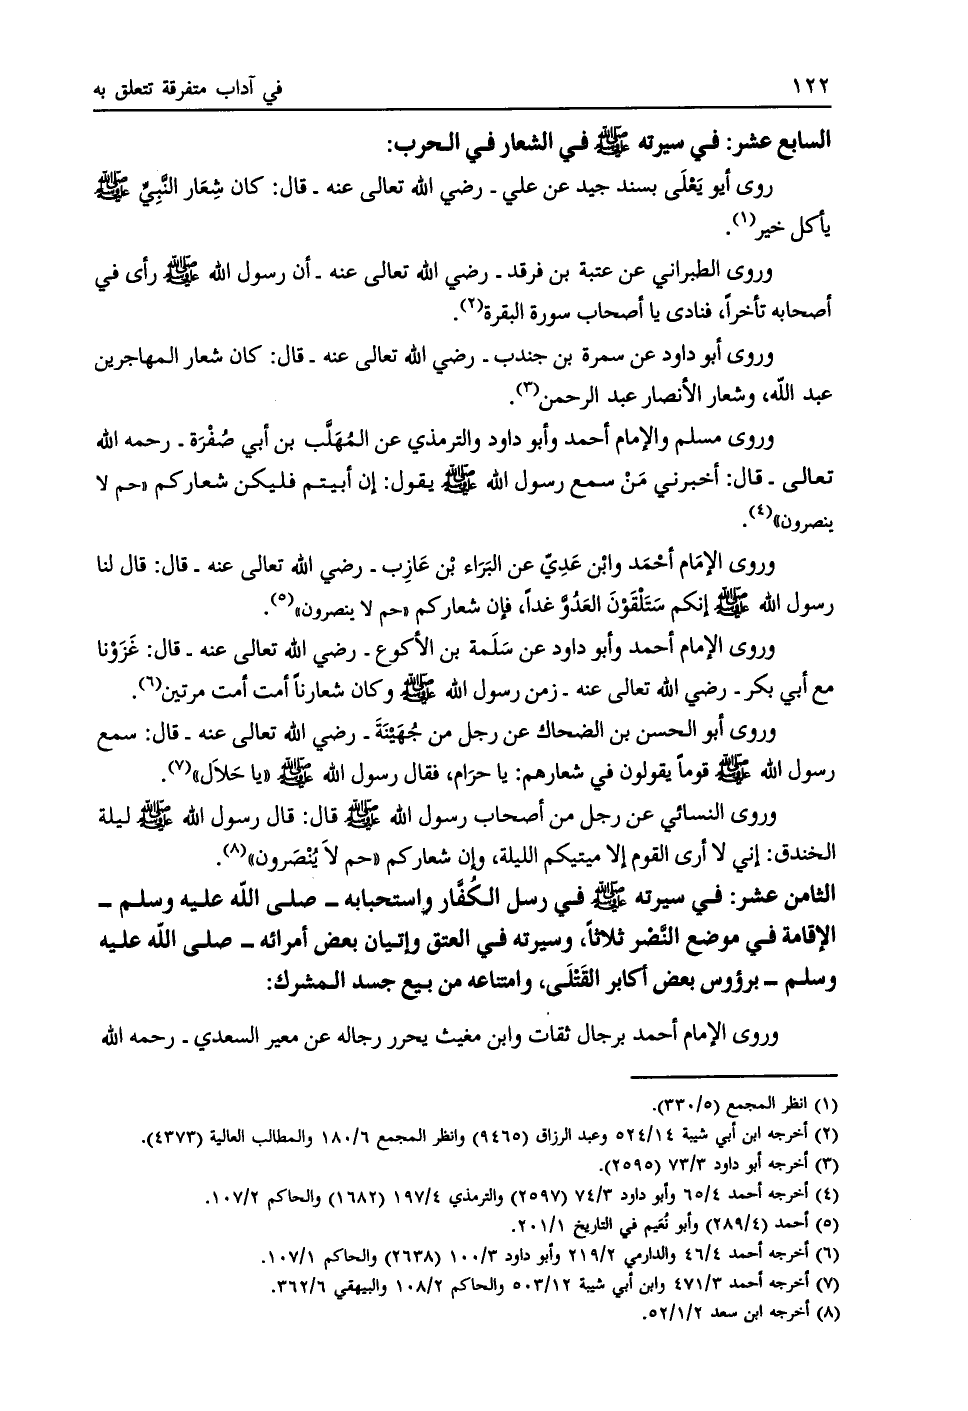 ١٢٢ في آداب متفرقة تتعلق به
السابع عشر: في سيرته ﷺ في الشعار في الحرب:
روى أيو يَعْلَى بسند جيد عن علي ـ رضي الله تعالى عنه ـ قال: كان شِعَار النَّبِيِّ ﷺ
يأكل خير(١).
وروى الطبراني عن عتبة بن فرقد ـ رضي الله تعالى عنه ـ أن رسول الله ﷺ رأى في
أصحابه تأخراً، فنادى يا أصحاب سورة البقرة(٢).
وروى أبو داود عن سمرة بن جندب ـ رضي الله تعالى عنه ـ قال: كان شعار المهاجرين
عبد اللّه، وشعار الأنصار عبد الرحمن(٣).
وروى مسلم والإمام أحمد وأبو داود والترمذي عن المُهَلَّب بن أبي صُفْرَة ـ رحمه الله
تعالى ـ قال: أخبرني مَنْ سمع رسول الله ﷺ يقول: إن أبيتم فليكن شعاركم «حم لا
ينصرون»(٤).
وروى الإمَام أحْمَد وابْن عَدِيّ عن البَرَاء بْن عَازِب ـ رضي الله تعالى عنه ـ قال: قال لنا
رسول الله ﷺ إنكم سَتَلْقَوْنَ العَدُوَّ غداً، فإن شعاركم «حم لا ينصرون»(٥).
وروى الإمام أحمد وأبو داود عن سَلَمة بن الأكوع ـ رضي الله تعالى عنه ـ قال: غَزَوْنا
مع أبي بكر ـ رضي الله تعالى عنه ـ زمن رسول الله ﷺ وكان شعارناً أمت أمت مرتين(٦).
وروى أبو الحسن بن الضحاك عن رجل من جُهَيْنَةَ ـ رضي الله تعالى عنه ـ قال: سمع
رسول الله ﷺ قوماً يقولون في شعارهم: يا حرَام، فقال رسول الله ﷺ «يا حَلاَل»(٧).
وروى النسائي عن رجل من أصحاب رسول الله ﷺ قال: قال رسول الله ﷺ ليلة
الخندق: إني لا أرى القوم إلا ميتيكم الليلة، وإن شعاركم «حم لاَ يُنْصَرون»(٨).
الثامن عشر: في سيرته ﷺ في رسل الكُفَّار واستحبابه ـ صلى اللّه عليه وسلم ـ
الإقامة في موضع النَّصْر ثلاثاً، وسيرته في العتق وإتيان بعض أمرائه ـ صلى اللّه عليه
وسلم ـ برؤوس بعض أكابر القَتْلَى، وامتناعه من بيع جسد المشرك:
وروى الإمام أحمد برجال ثقات وابن مغيث يحرر رجاله عن معير السعدي ـ رحمه الله
(١) انظر المجمع (٣٣٠/٥).
(٢) أخرجه ابن أبي شيبة ٥٢٤/١٤ وعبد الرزاق (٩٤٦٥) وانظر المجمع ١٨٠/٦ والمطالب العالية (٤٣٧٣).
(٣) أخرجه أبو داود ٧٣/٣ (٢٥٩٥).
(٤) أخرجه أحمد ٦٥/٤ وأبو داود ٧٤/٣ (٢٥٩٧) والترمذي ١٩٧/٤ (١٦٨٢) والحاكم ١٠٧/٢.
(٥) أحمد (٢٨٩/٤) وأبو نُعَيم في التاريخ ٢٠١/١.
(٦) أخرجه أحمد ٤٦/٤ والدارمي ٢١٩/٢ وأبو داود ١٠٠/٣ (٢٦٣٨) والحاكم ١٠٧/١.
(٧) أخرجه أحمد ٤٧١/٣ وابن أبي شيبة ٥٠٣/١٢ والحاكم ١٠٨/٢ والبيهقي ٣٦٢/٦.
(٨) أخرجه ابن سعد ٥٢/١/٢.